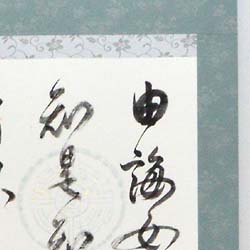 由誨女
知是知